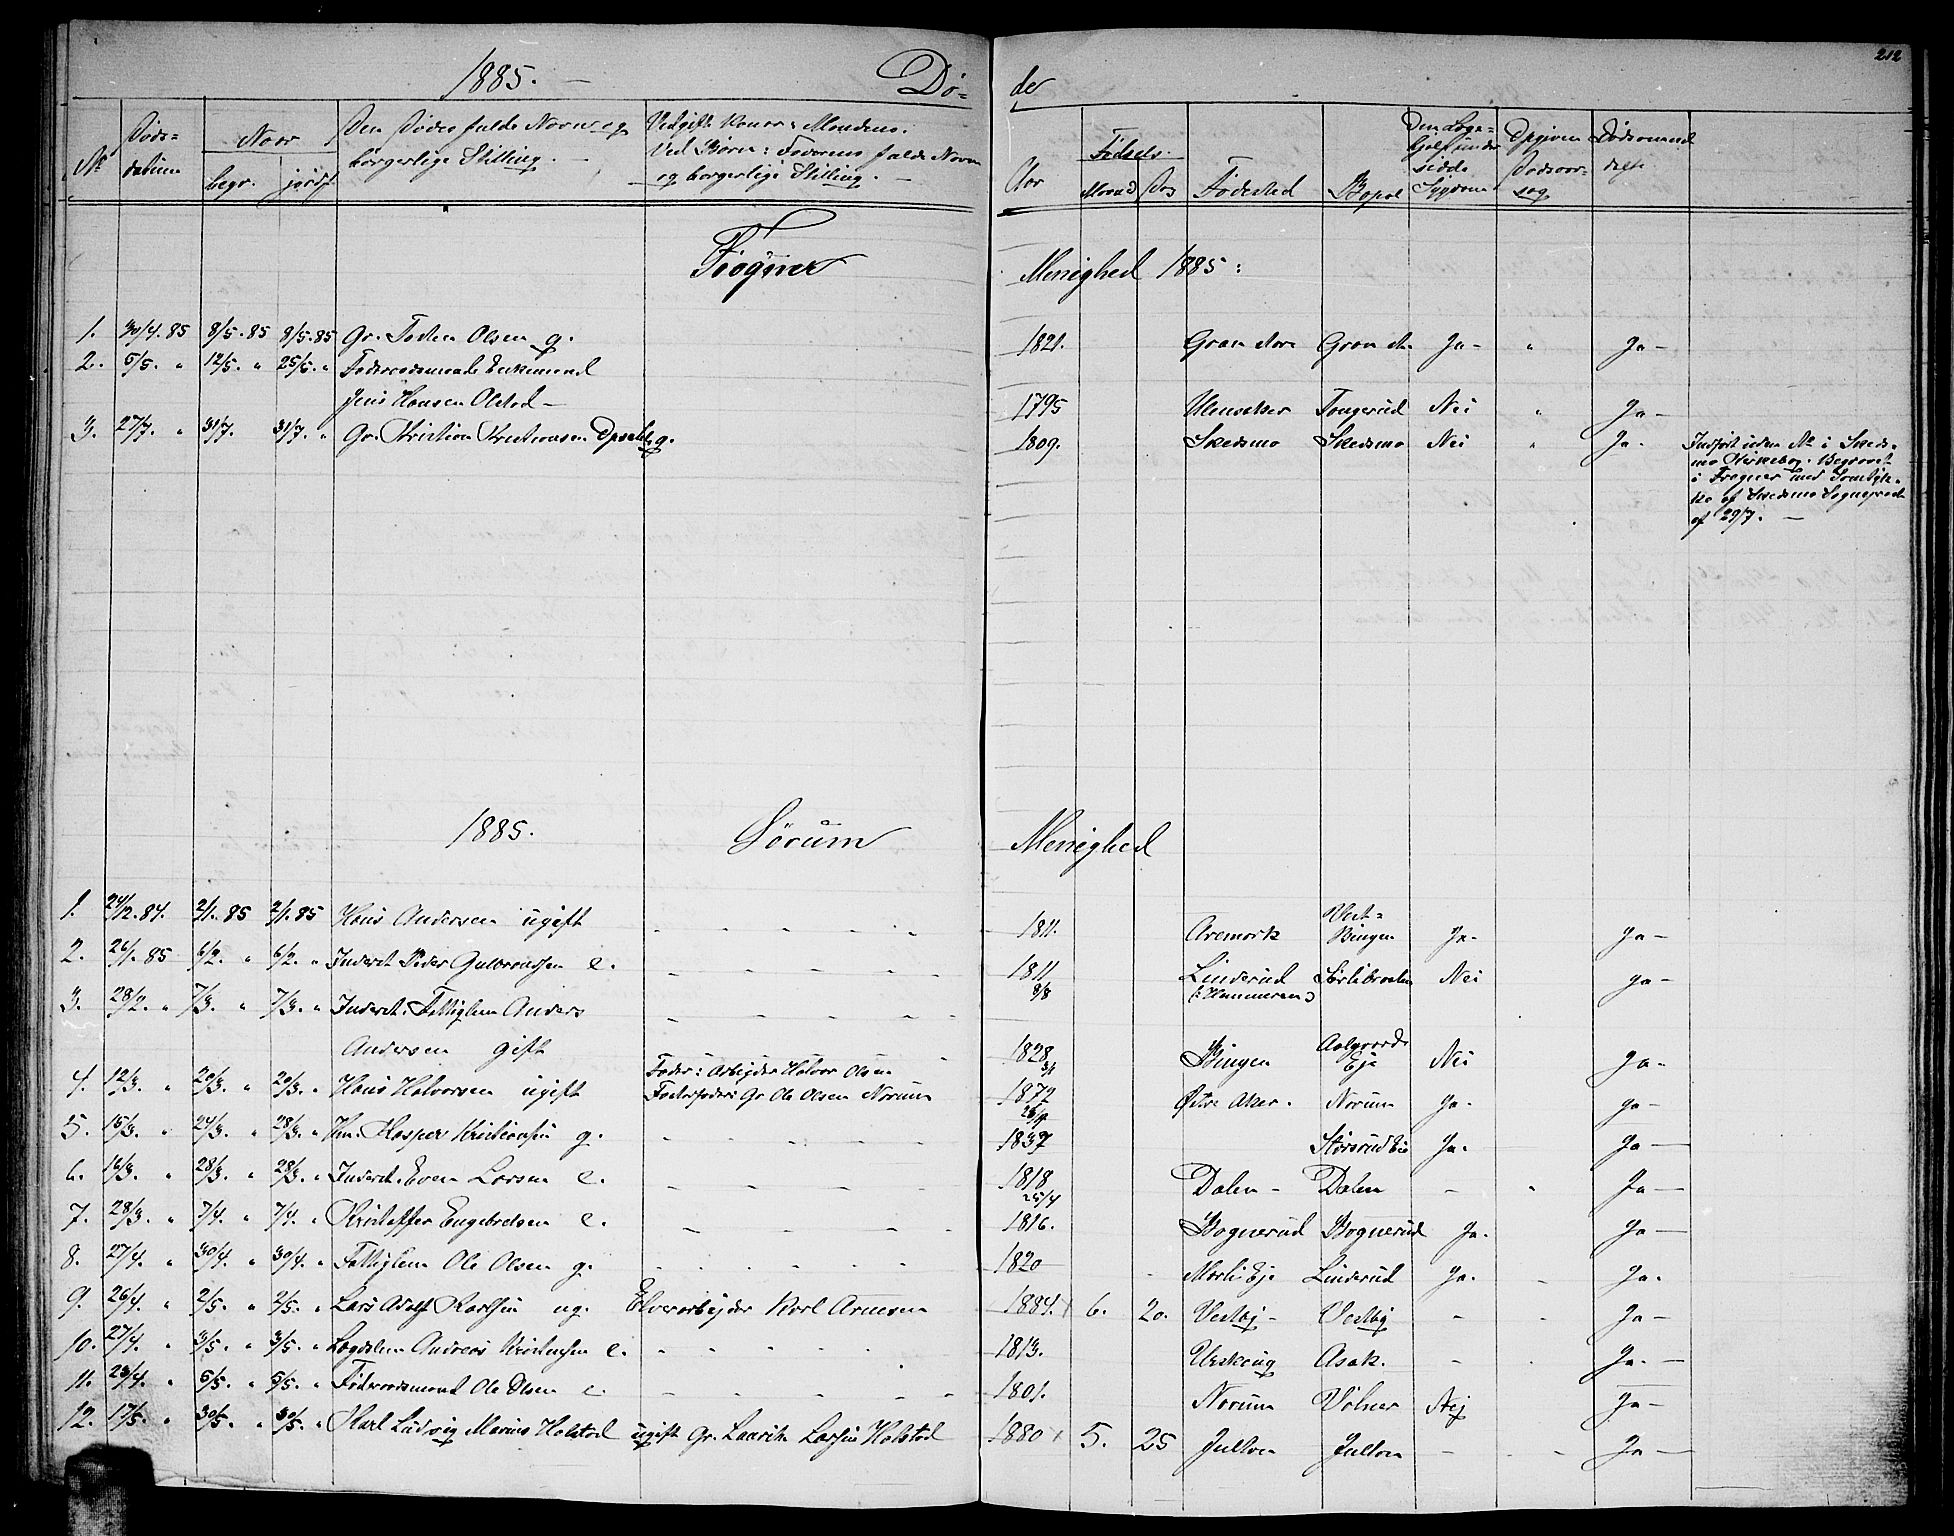 212
1885. — Dø- de
No
Døds-
datum
Naar
begr. jordf.
Den Dødes fulde Navn og
borgerlige Stilling. —
Ved gifte Koner: Mandens.
Ved Børn: Faderens fulde Navn
og borgerlige Stilling. —
Aar
Fødsels-
Maaned Dag
Fødested
Bopæl
Sygdom
Opgiven
Dødsaar-
sag
Frogner Menighed 1885:
1. 30/4. 85 8/5. 85 8/5. 85 Gr. Olsen g. 1821. Ja — " Ja —
2. 5/5. " 12/5. " 25/5. "
Jens Hansen Olstad — 1795 Ullensaker Tangerud Nei " Ja —
3. 27/7. " 31/7. 31/7. " Gr. Kristian Kristiansen g. 1809. Skedsmo Skedsmo Nei " Ja.
Indført uden No i Skeds-
mo Kirkebog. Begravet
i Frogner med Samtyk-
ke af Skedsmo Sognepræst
af 29/7. —
1885. Sørum Menighed
1. 24/12. 84. 2/1. 85 2/1. 85 Hans Andersen ugift 1811. Aremark Vest-
Bingen Ja. Ja —
2. 26/1. 85 6/2. " 6/2. " Inderst Peder Gulbrandsen e. 1811
8/8 Linderud
(: Hammeren) Nei Ja —
3. 28/2. " 7/3. " 7/3. " Inderst. Fattiglem Anders
Andersen gift 1828 Bingen Aalgaards
Eje Nei Ja.
4. 12/3. " 20/3. " 20/3. " Hans Halvorsen ugift Fader: Arbejder Halvor Olsen
Fosterfader: Gr. Ole Olsen Norum 1872 Østre Aker. Norum Ja. Ja —
5. 15/3. " 24/3. " 28/3. " Hm. Kasper Kristiansen g. 1837 Ja. Ja —
6. 16/3. " 28/3. " 28/3. " Inderst. Even Larsen e. 1818
25/4 Dalen — Dalen — " Ja —
7. 28/3. " 7/4. " 7/4. " Kristoffer Engebretsen e. 1816. Bognerud Bognerud Ja. Ja —
8. 27/4. " 30/4. " 30/4. " Fattiglem Ole Olsen g. 1820 Mørli Eje Linderud Ja. Ja.
9. 26/4. " 2/5. " 2/5. " Lars Adolf Karlsen ug. Elvearbejder Karl Arnesen 1884. 6. 20. Vestby — Vestby — Ja —
10. 27/4. " 3/5. " 3/5. " Lægdslem Andreas Kristensen e. 1813. Urskoug Asak. — Ja. —
11. 23/4. " 5/5. " 5/5. " Føderaadsmand Ole Olsen e. 1801. Norum Vølner Nej Ja —
12. 17/5. " 30/5. " 30/5. " Karl Ludvig Marius Holstad ugift Gr. Laurits Larsen Holstad 1880 5. 25 Jultom Jultom — Ja —